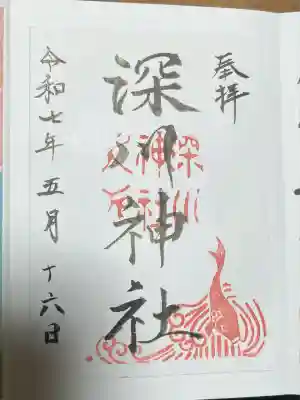 奉拝
深川神社
深川
神社
令和七年 五月 十六日